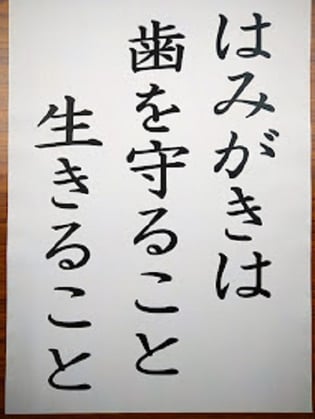 はみがきは
歯を守ること
生きること